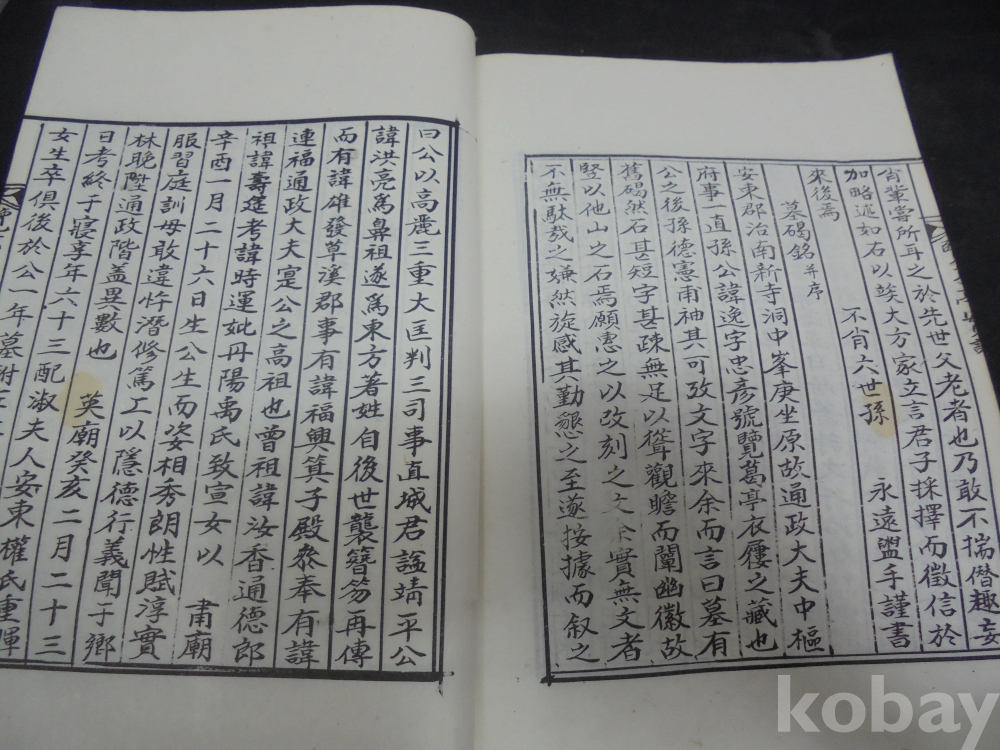 省輩嘗所耳之於先世父老者也乃敢不揣僭趣妄
加略述如右以竢大方家立言君子採擇而徵信於
來後焉 不肖六世孫 永遠盥手謹書
墓碣銘并序
安東郡治南新寺洞中峯庚坐原故通政大夫中樞
府事一直孫公諱逸字忠彦號覽葛亭衣屨之藏也
公之後孫德憲甫袖其可攷文字來余而言曰墓有
舊碣然石甚短字甚疎無足以聳觀瞻而闡幽徽故
竪以他山之石焉願惠之以改刻之文余實無文者
不無駄哉之嫌然旋感其勤懇之至遂按據而叙之
曰公以高麗三重大匡判三司事直城君諡靖平公
諱洪亮爲鼻祖遂爲東方著姓自後世襲簪笏再傳
而有諱雄發草溪郡事有諱福興箕子殿叅奉有諱
連福通政大夫寔公之高祖也曾祖諱汝香通德郎
祖諱壽 考諱時運妣丹陽禹氏致宣女以 肅廟
辛酉一月二十六日生公生而姿相秀朗性賦淳實
服習庭訓母敢違忤潛修篤工以隱德行義聞于鄉
林晚陞通政階盖異數也 英廟癸亥二月二十三
日考終于寢享年六十三配淑夫人安東權氏重暉
女生卒俱後於公一年墓附
kobay